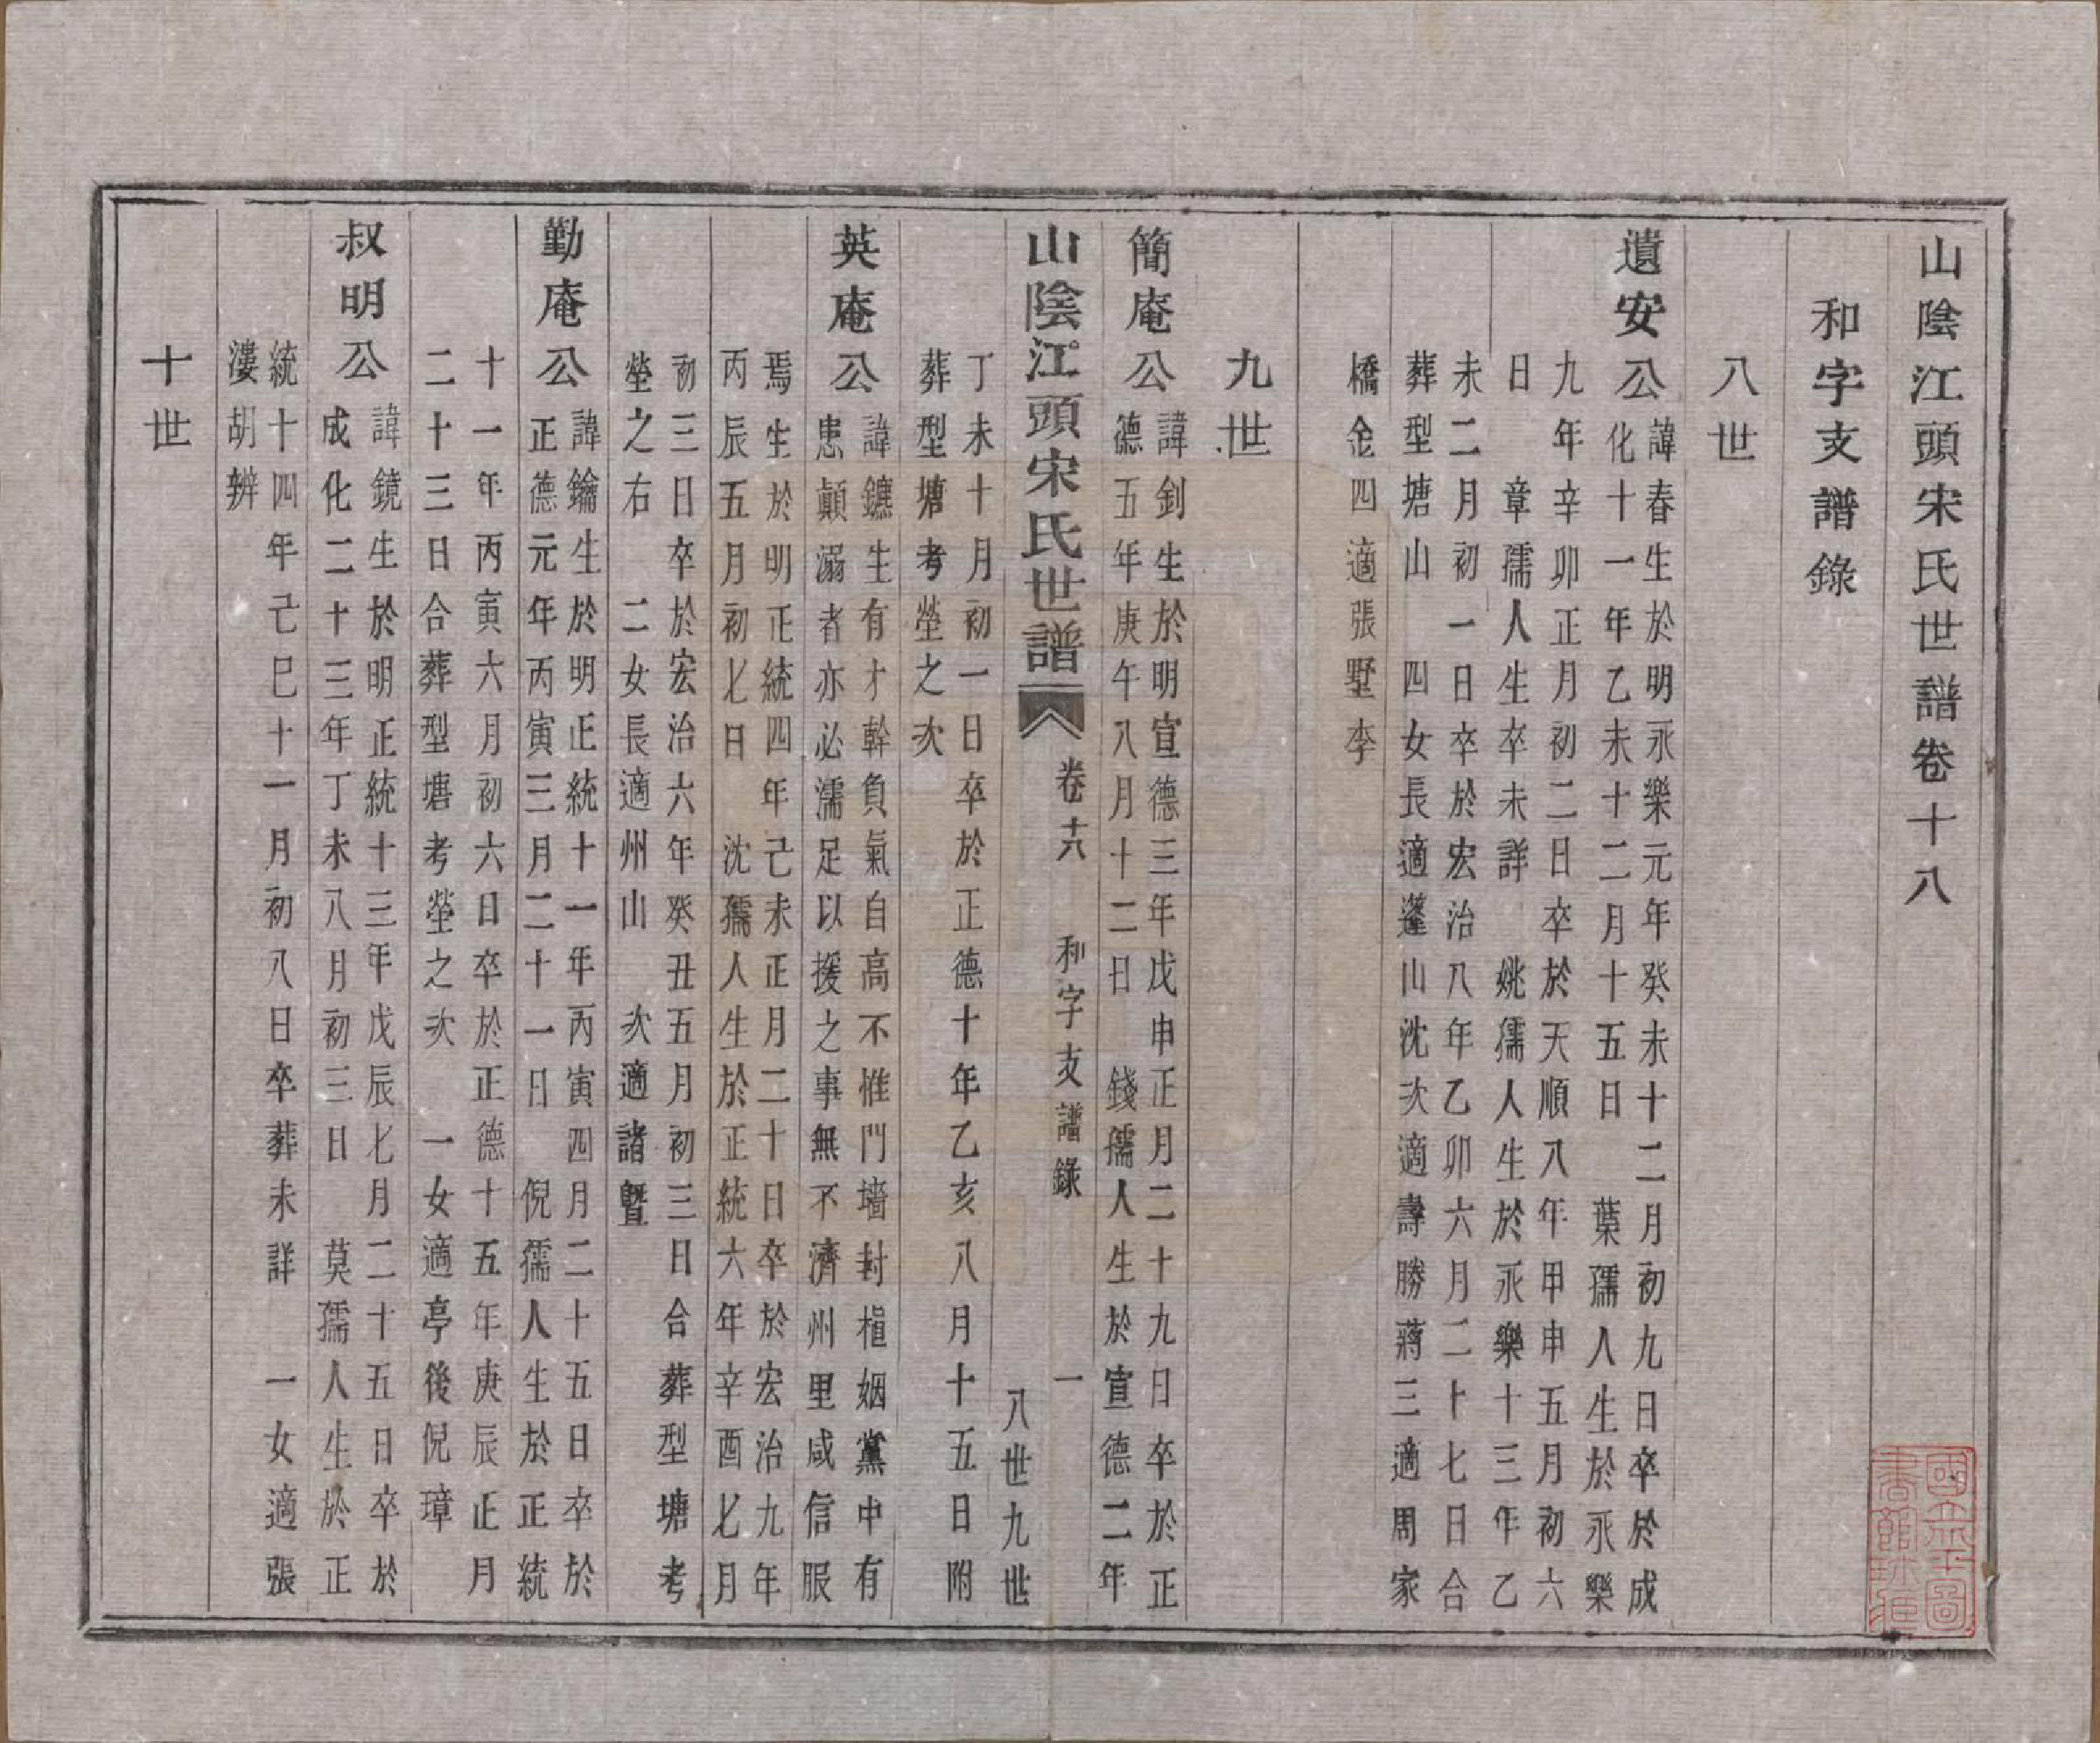 山陰江頭宋氏世譜卷十八
和字支譜錄
八世
遺安公
諱春生於明永樂元年癸未十二月初九日卒於成
化十一年乙未十二月十五日　葉孺人生於永樂
九年辛卯正月初二日卒於天順八年甲申五月初六
日　章孺人生卒未詳　姚孺人生於永樂十三年乙
未二月初一日卒於宏治八年乙卯六月二十七日合
葬型塘山　四女長適蓬山沈次適壽勝蔣三適周家
橋金四適張墅李
九世
簡庵公
諱釗生於明宣德三年戊申正月二十九日卒於正
德五年庚午八月十二日　錢孺人生於宣德二年
丁未十月初一日卒於正德十年乙亥八月十五日附
葬型塘考塋之次
山陰江頭宋氏世譜
卷十八　和字支譜錄　一
八世九世
英庵公
諱鑣生有才幹負氣自高不惟門墻封植姻黨中有
患顛溺者亦必濡足以援之事無不濟州里咸信服
焉生於明正統四年己未正月二十日卒於宏治九年
丙辰五月初七日　沈孺人生於正統六年辛酉七月
初三日卒於宏治六年癸丑五月初三日合葬型塘考
塋之右　二女長適州山　次適諸暨
勤庵公
諱鑰生於明正統十一年丙寅四月二十五日卒於
正德元年丙寅三月二十一日　倪孺人生於正統
十一年丙寅六月初六日卒於正德十五年庚辰正月
二十三日合葬型塘考塋之次　一女適亭後倪璋
叔明公
諱鏡生於明正統十三年戊辰七月二十五日卒於
成化二十三年丁未八月初三日　莫孺人生於正
統十四年己巳十一月初八日卒葬未詳　一女適張
漊胡辨
十世